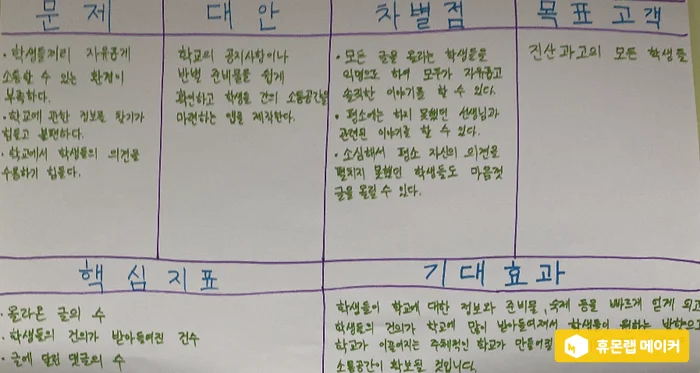 문제
· 학생들끼리 자유롭게
소통할 수 있는 환경이
부족하다.
· 학교에 관한 정보를 찾기가
힘들고 불편하다.
· 학교에서 학생들의 의견을
수용하기 힘들다.
대안
학교의 공지사항이나
반별 준비물을 쉽게
확인하고 학생들 간의 소통공간을
마련하는 앱을 제작한다.
차별점
· 모든 글을 올리는 학생들을
익명으로 하여 모두가 자유롭고
솔직한 이야기를 할 수 있다.
· 평소에는 하지 못했던 선생님과
관련된 이야기를 할 수 있다.
· 소심해서 평소 자신의 의견을
펼치지 못했던 학생들도 마음껏
글을 올릴 수 있다.
목표고객
진산과고의 모든 학생들
핵심지표
· 올라온 글의 수
· 학생들의 건의가 받아들여진 건수
· 글에 달린 댓글의 수
기대효과
학생들이 학교에 대한 정보와 준비물, 숙제 등을 빠르게 얻게 되고
학생들의 건의가 학교에 많이 받아들여져서 학생들이 원하는 방향으로
학교가 이끌어지는 주체적인 학교가 만들어질
소통공간이 확보될 것입니다.
휴몬랩 메이커